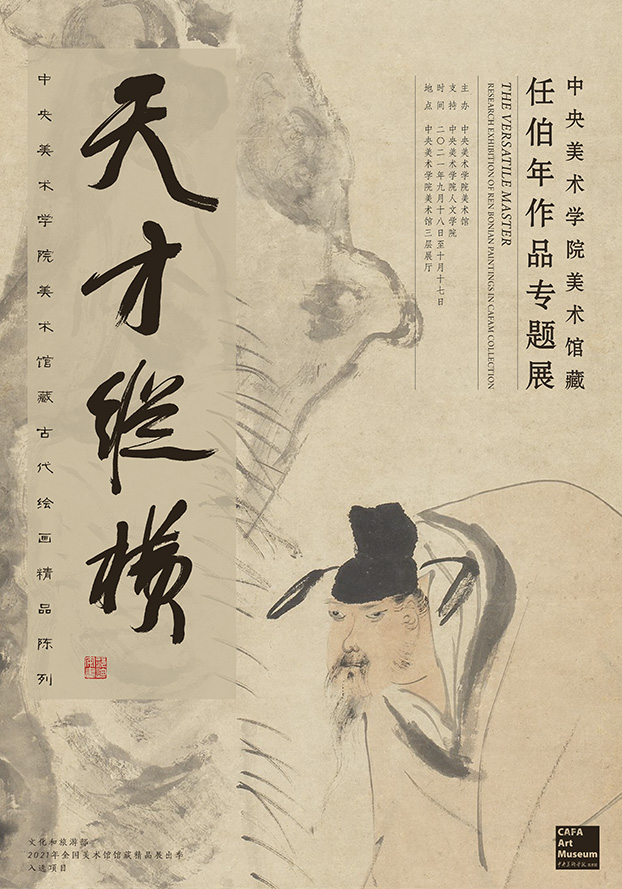 中央美术学院美术馆藏
任伯年作品专题展
THE VERSATILE MASTER
RESEARCH EXHIBITION OF REN BONIAN PAINTINGS IN CAFAM COLLECTION
主办 中央美术学院美术馆
支持 中央美术学院人文学院
时间 二〇二一年九月十八日至十月十七日
地点 中央美术学院美术馆三层展厅
天才纵横
中央美术学院美术馆藏古代绘画精品陈列
文化和旅游部
2021年全国美术馆馆藏精品展出季
入选项目
CAFA
Art
Museum
中央美术学院 美术馆